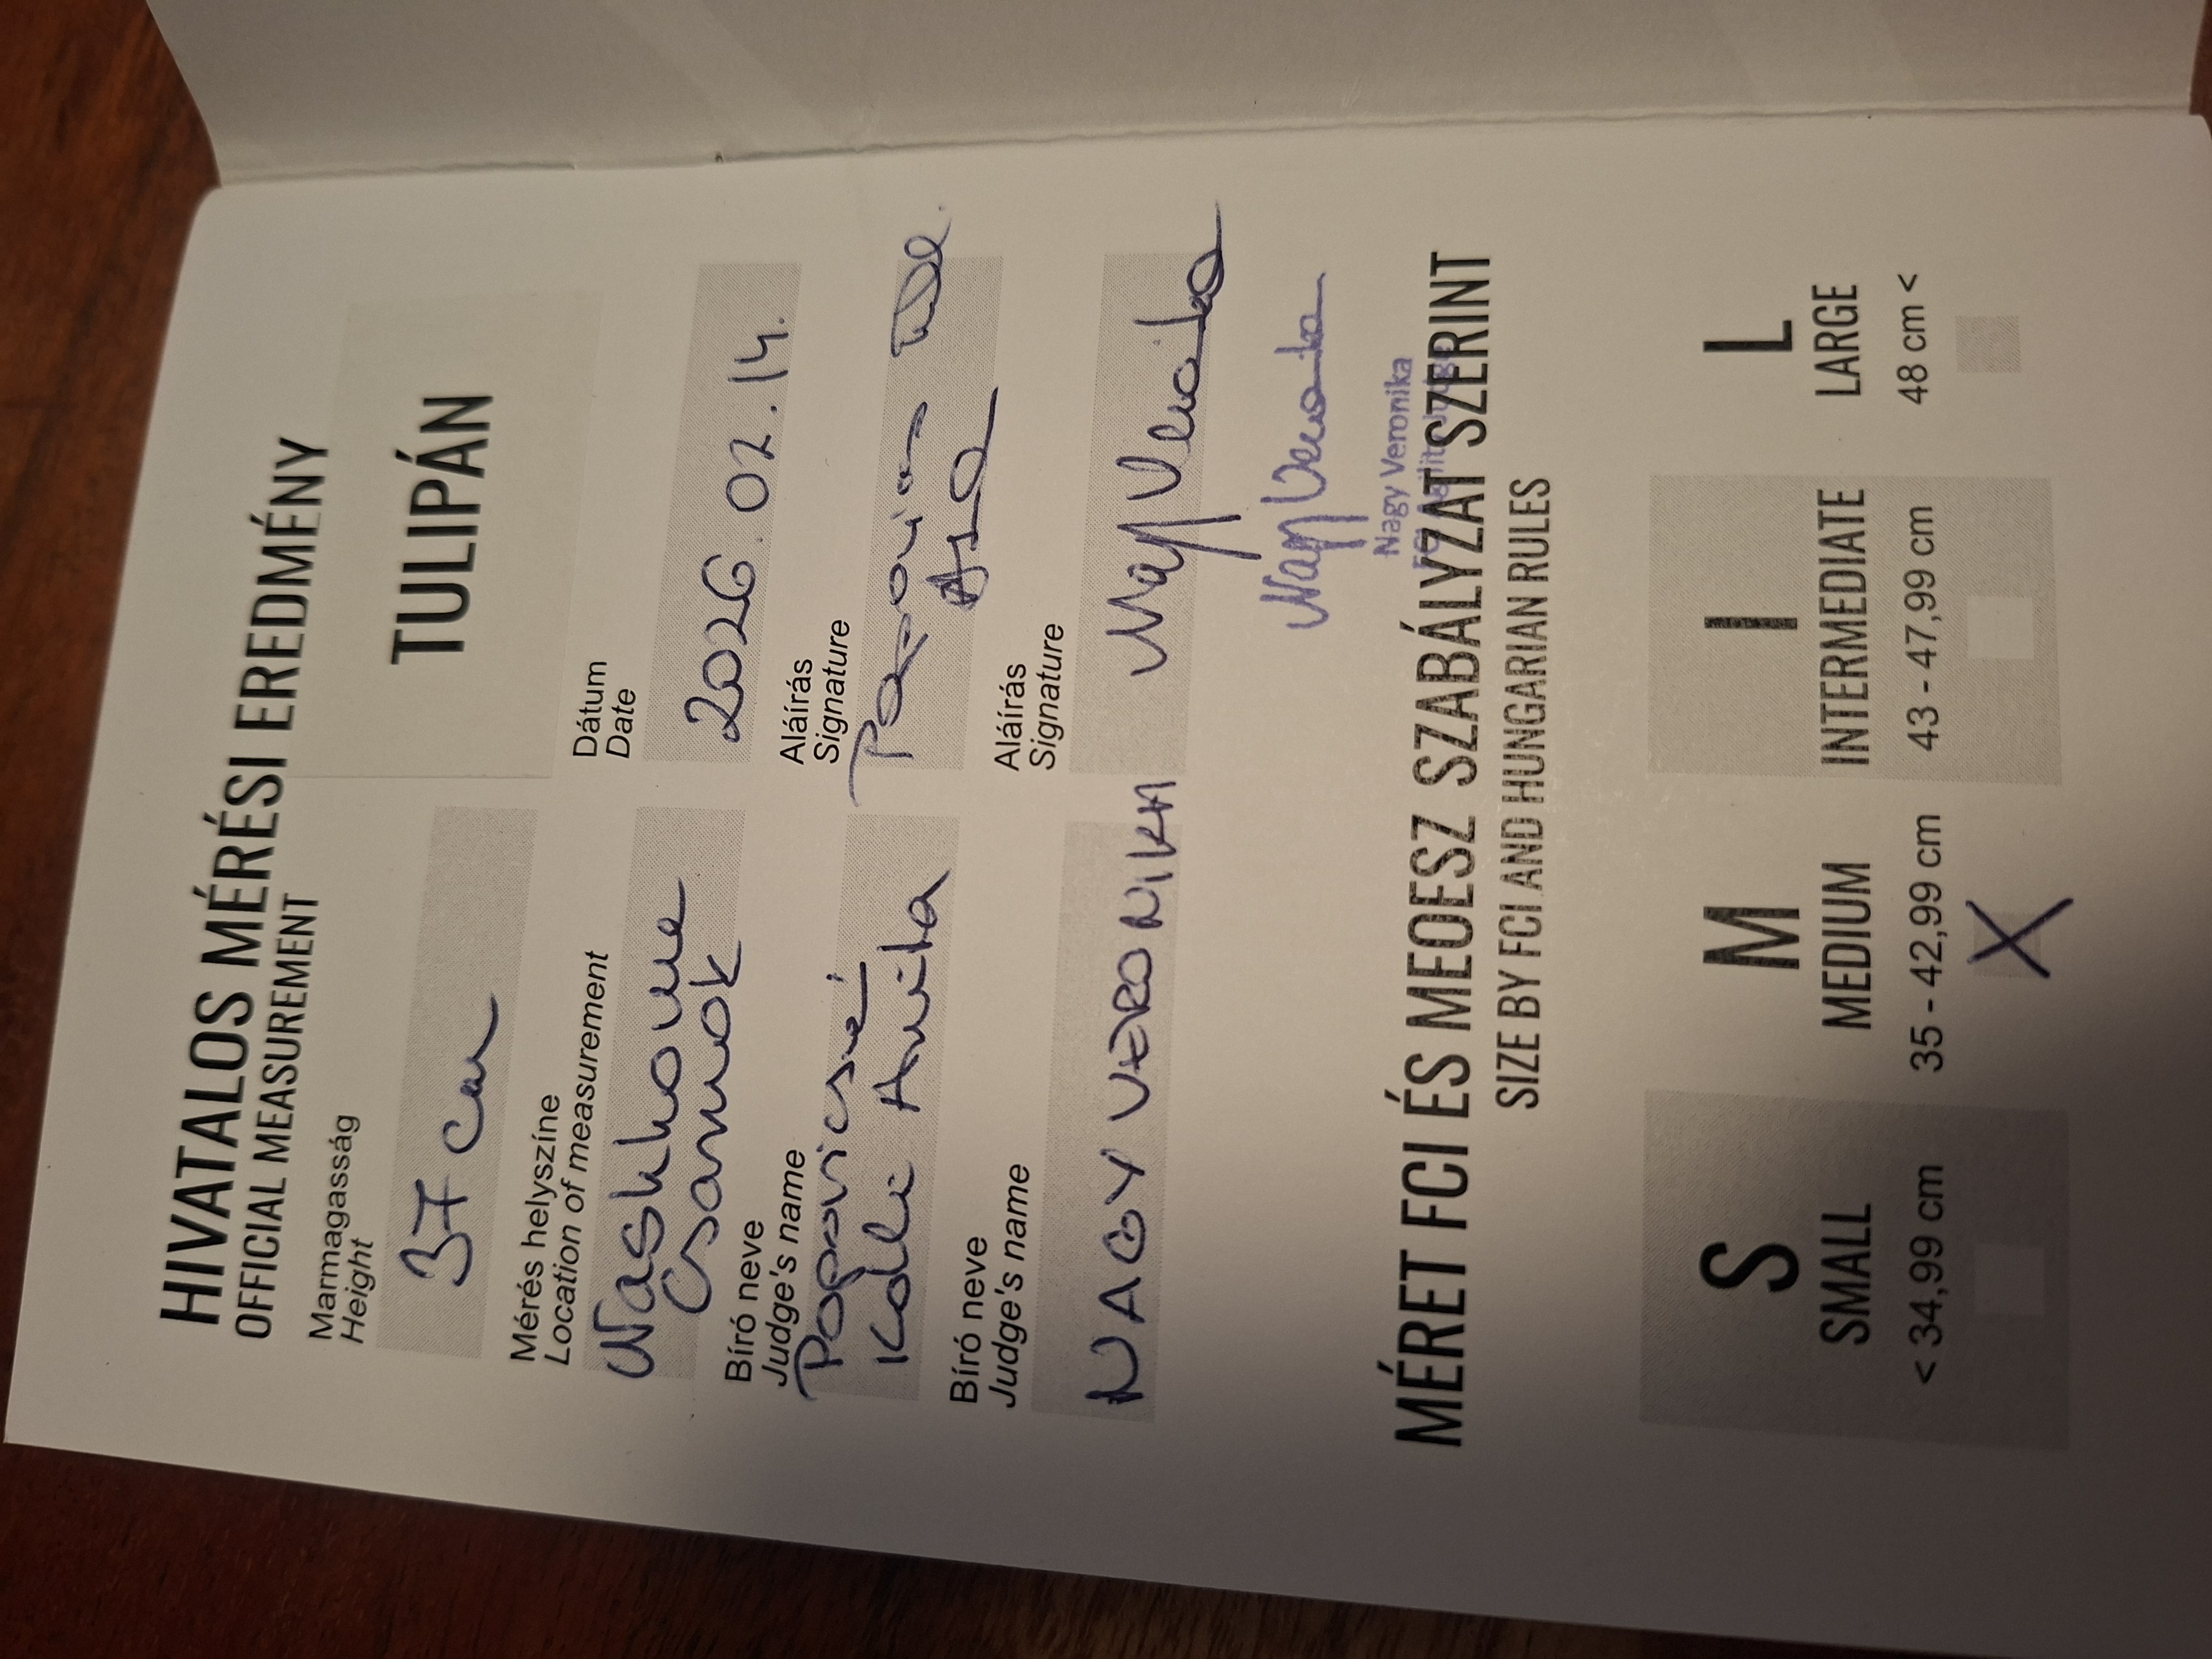 HIVATALOS MÉRÉSI EREDMÉNY
OFFICIAL MEASUREMENT
Marmagasság
Height
37 cm
TULIPÁN
Mérés helyszíne
Location of measurement
csarnok
Dátum
Date
2026.02.14.
Bíró neve
Judge's name
Popovicsné
Anita
Aláírás
Signature
Bíró neve
Judge's name
NAGY VERONIKA
Aláírás
Signature
Nagy Veronika
Nagy Veronika
Nagy Veronika
MÉRET FCI ÉS MEOESZ SZABÁLYZAT SZERINT
SIZE BY FCI AND HUNGARIAN RULES
S M I L
SMALL MEDIUM INTERMEDIATE LARGE
< 34,99 cm 35 - 42,99 cm 43 - 47,99 cm 48 cm <
X